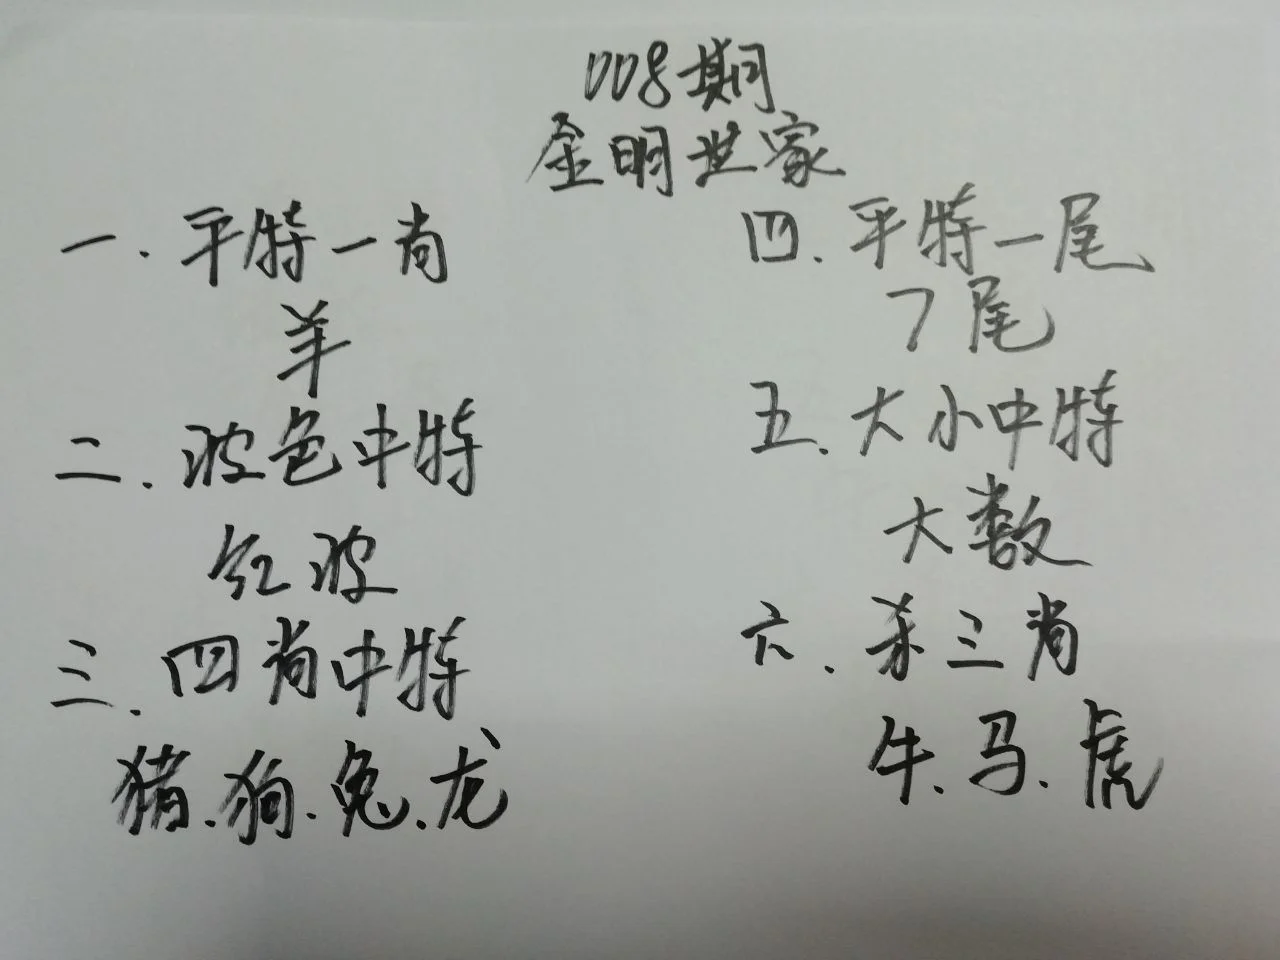 008期
金明世家
一.平特一肖
羊
二.波色中特
红波
三.四肖中特
猪.狗.兔.龙
四.平特一尾
7尾
五.大小中特
大数
六.杀三肖
牛.马.虎